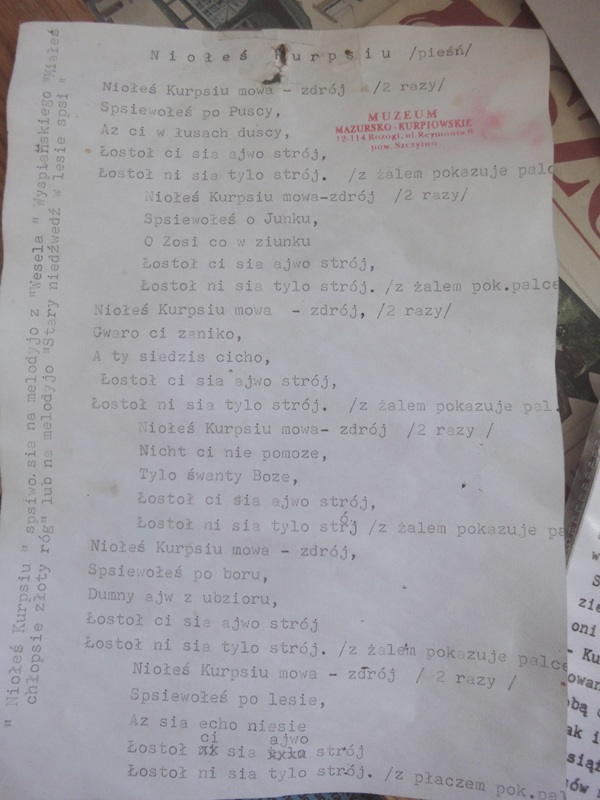 Niołeś Kurpsiu /pieśń/
Niołeś Kurpsiu mowa - zdrój /2 razy/
Spsiewołeś po Puscy,
Az ci w łusach duscy,
Łostoł ci sia ajwo strój,
Łostoł ni sia tylo strój. /z żalem pokazuje palc
MUZEUM
MAZURSKO-KURPIOWSKIE
12-114 Rozogi, ul. Reymonta 6
pow. Szczytno
Niołeś Kurpsiu mowa-zdrój /2 razy/
Spsiewołeś o Junku,
O Zosi co w ziunku
Łostoł ci sia ajwo strój,
Łostoł ni sia tylo strój. /z żalem pok.palce
Niołeś Kurpsiu mowa - zdrój, /2 razy/
Gwaro ci zaniko,
A ty siedzis cicho,
Łostoł ci sia ajwo strój,
Łostoł ni sia tylo strój. /z żalem pokazuje pal.
Niołeś Kurpsiu mowa- zdrój /2 razy /
Nicht ci nie pomoze,
Tylo śwanty Boze,
Łostoł ci sia ajwo strój,
Łostoł ni sia tylo strój /z żalem pokazuje pa
Niołeś Kurpsiu mowa - zdrój,
Spsiewołeś po boru,
Dumny ajw z ubzioru,
Łostoł ci sia ajwo strój
Łostoł ni sia tylo strój. /z żalem pokazuje palce
Niołeś Kurpsiu mowa - zdrój / 2 razy /
Spsiewołeś po lesie,
Az sia echo niesie
Łostoł ci sia ajwo strój
Łostoł ni sia tylo strój. /z płaczem pok.pal
" Niołeś Kurpsiu " spsiwo.sia na melodyjo z "Wesela " Wyspiańskiego "Miałeś
chłopsie złoty róg" lub na melodyjo "Stary niedźwedź w lesie spsi "
w
S
zie
oni
- Ku
owan
bą
ak i
siąż
ów